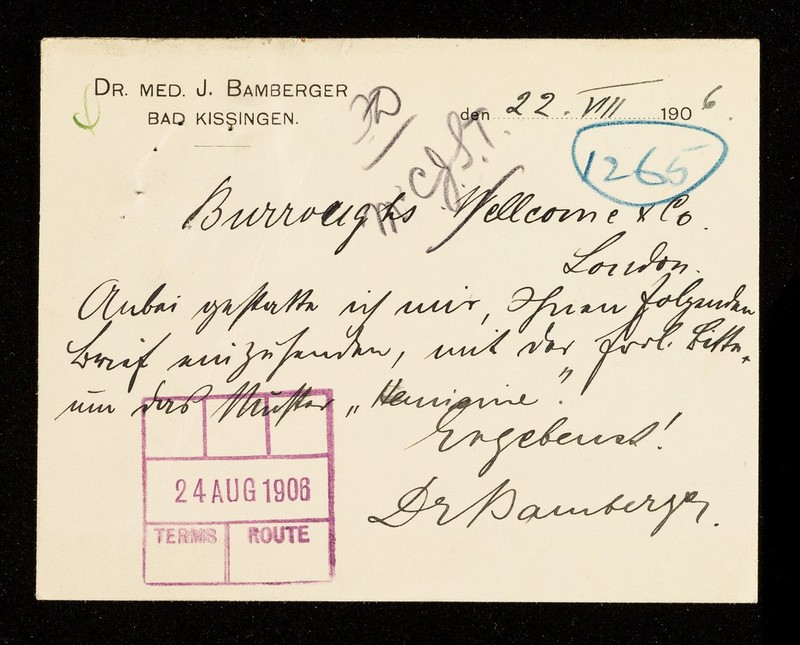 DR. MED. J. BAMBERGER
BAD KISSINGEN.
den 22. VIII 1906.
1265
Burroughs Wellcome & Co.
London.
Anbei gestatte ich mir, Ihnen folgenden
Brief einzusenden, mit der frdl. Bitte,
um das Muster „Hemisine".
Ergebenst!
Dr Bamberger.
24 AUG 1906
TERMS ROUTE